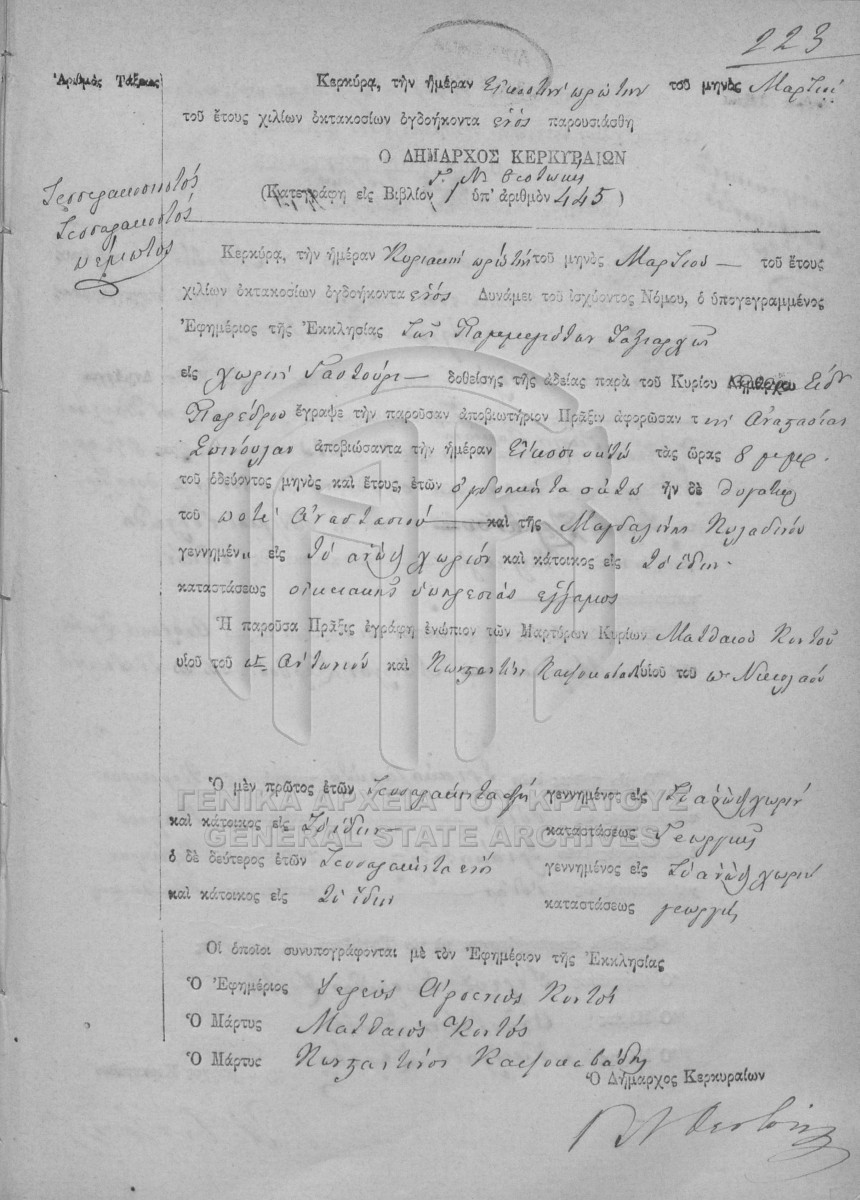 223
Ἀριθμὸς Τάξεως
Κερκύρα, τὴν ἡμέραν Εἰκοστὴν πρώτην τοῦ μηνὸς Μαρτίου
τοῦ ἔτους χιλίων ὀκτακοσίων ὀγδοήκοντα ἑνὸς παρουσιάσθη
Ὁ ΔΗΜΑΡΧΟΣ ΚΕΡΚΥΡΑΙΩΝ
Γ. Μ Θεοτώκης
(Κατεγράφη εἰς Βιβλίον 1 ὑπ' ἀριθμὸν 445)
Τεσσαρακοστός
πέμπτος
Κερκύρα, τὴν ἡμέραν Κυριακὴν πρώτην τοῦ μηνὸς Μαρτίου τοῦ ἔτους
χιλίων ὀκτακοσίων ὀγδοήκοντα ἑνὸς Δυνάμει τοῦ ἰσχύοντος Νόμου, ὁ ὑπογεγραμμένος
Ἐφημέριος τῆς Ἐκκλησίας τῶν Παμμεγίστων Ταξιαρχῶν
εἰς χωρίον Γαστούρι δοθείσης τῆς ἀδείας παρὰ τοῦ Κυρίου Δημάρχου Εἰδ
Παρέδρου ἔγραψε τὴν παροῦσαν ἀποβιωτήριον Πρᾶξιν ἀφορῶσαν τὴν Ἀναστασίαν
Σπινούλαν ἀποβιώσαντα τὴν ἡμέραν Εἴκοσι ὀκτὼ τὰς ὥρας 8 μ μρ.
τοῦ ὁδεύοντος μηνὸς καὶ ἔτους, ἐτῶν ὀγδοήκοντα ὀκτὼ ἦν δὲ θυγάτηρ
τοῦ ποτὲ Ἀναστασίου καὶ τῆς Μαγδαλινῆς Κολαδινοῦ
γεννημένη εἰς τὸ ἄνωθ χωρίον καὶ κάτοικος εἰς τὸ ἴδιον
καταστάσεως οἰκιακῆς ὑπηρεσίας ἔγγαμος
Ἡ παροῦσα Πρᾶξις ἐγράφη ἐνώπιον τῶν Μαρτύρων Κυρίων Ματθαίου Κοντοῦ
υἱοῦ τοῦ Ἀντωνίου καὶ Κωνσταντίνου υἱοῦ τοῦ π Νικολάου
Ὁ μὲν πρῶτος ἐτῶν Τεσσαράκοντα γεννημένος εἰς Τὸ ἄνωθ χωρίον
καὶ κάτοικος εἰς Τὸ ἴδιον καταστάσεως Γεωργός
ὁ δὲ δεύτερος ἐτῶν Τεσσαράκοντα ἑνὸς γεννημένος εἰς Τὸ ἄνωθ χωρίον
καὶ κάτοικος εἰς Τὸ ἴδιον καταστάσεως γεωργός
Οἱ ὁποῖοι συνυπογράφονται μὲ τὸν Ἐφημέριον τῆς Ἐκκλησίας
Ὁ Ἐφημέριος Ἱερεὺς Ἀρσένιος Κοντός
Ὁ Μάρτυς Ματθαίος Κοντός
Ὁ Μάρτυς Κωνσταντῖνος
Ὁ Δήμαρχος Κερκυραίων
ΓΕΝΙΚΑ ΑΡΧΕΙΑ ΤΟΥ ΚΡΑΤΟΥΣ
GENERAL STATE ARCHIVES